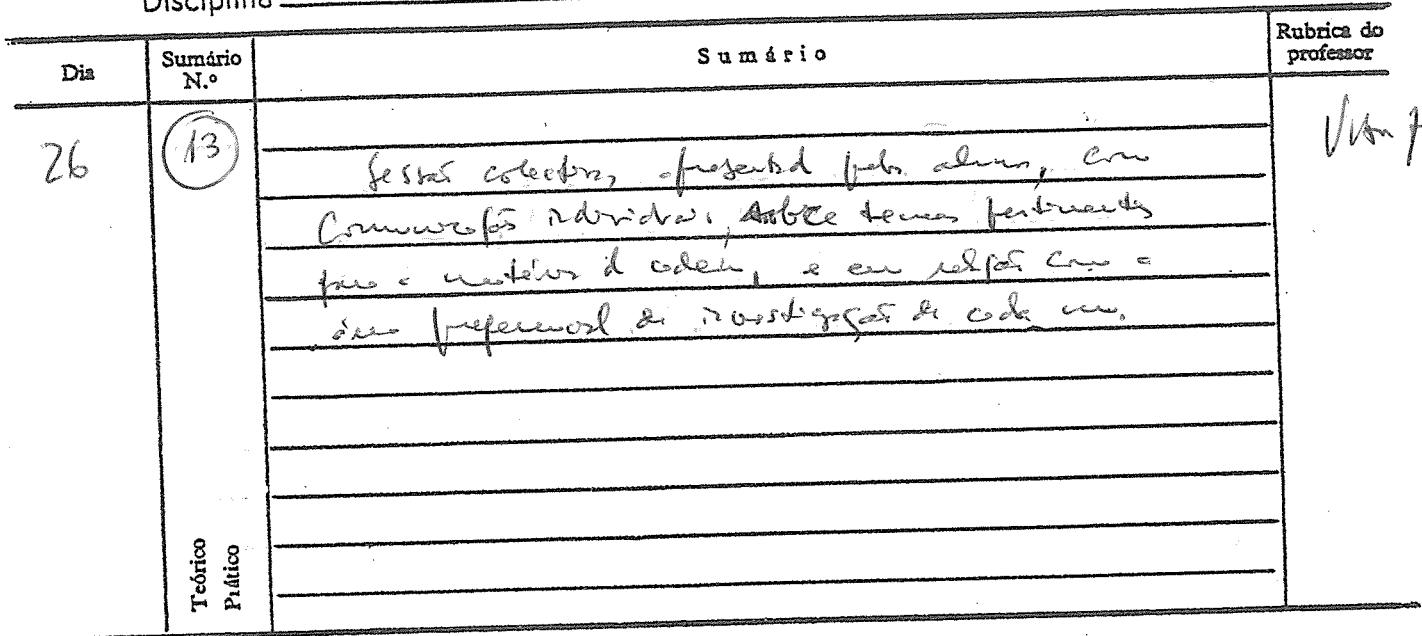 Disciplina
Dia
Sumário N.º
Sumário
Rubrica do professor
26
13
Sessão colectiva, apresentad pelos alunos, com
comunicações individuais, sobre temas pertinentes
para a matéria d cadeira, e em relação com a
área preferencial de investigação de cada um.
Teórico
Prático